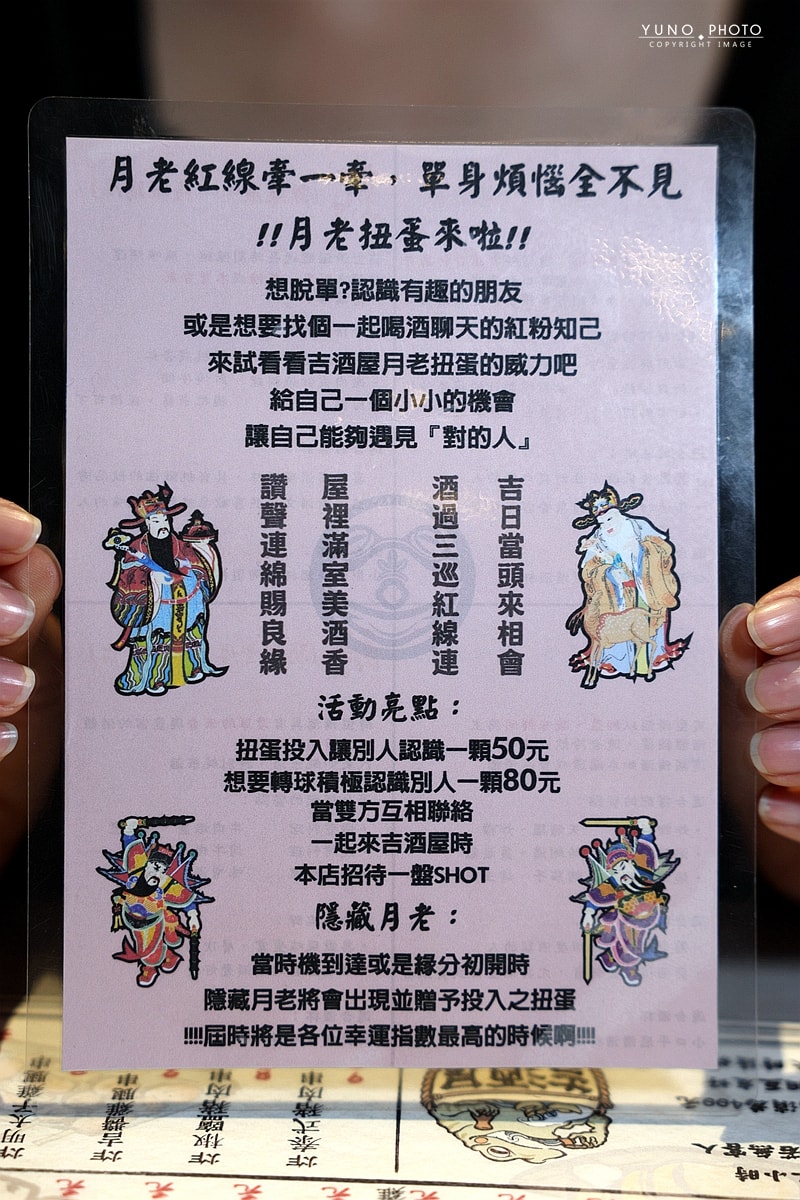 YUNO PHOTO
COPYRIGHT IMAGE
月老紅線牽一牽，單身煩惱全不見
!!月老扭蛋來啦!!
想脫單?認識有趣的朋友
或是想要找個一起喝酒聊天的紅粉知己
來試看看吉酒屋月老扭蛋的威力吧
給自己一個小小的機會
讓自己能夠遇見『對的人』
吉日當頭來相會
酒過三巡紅線連
屋裡滿室美酒香
讚聲連綿賜良緣
活動亮點：
扭蛋投入讓別人認識一顆50元
想要轉球積極認識別人一顆80元
當雙方互相聯絡
一起來吉酒屋時
本店招待一盤SHOT
隱藏月老：
當時機到達或是緣分初開時
隱藏月老將會出現並贈予投入之扭蛋
!!!!屆時將是各位幸運指數最高的時候啊!!!!